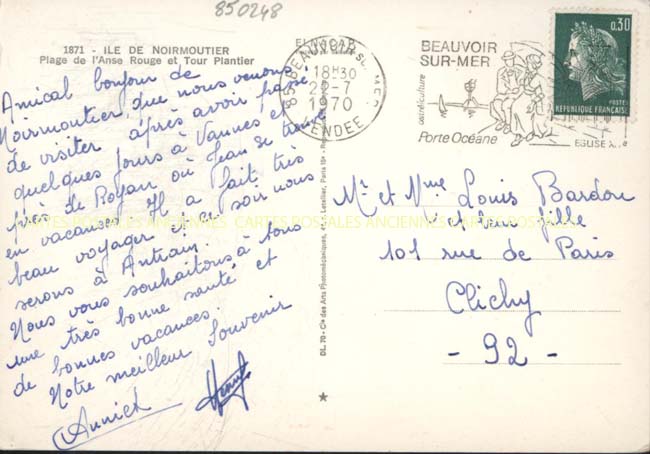 850248
1871 - ILE DE NOIRMOUTIER
Plage de l'Anse Rouge et Tour Plantier
Amical bonjour de
Noirmoutier que nous venons
de visiter après avoir passé
quelques jours à Vannes et
près de Royan où Jean se trouve
en vacances. Il a fait très
beau voyager et ce soir nous
serons à Antrain.
Nous vous souhaitons à tous
une très bonne santé et
de bonnes vacances.
Notre meilleur Souvenir
Annick
CARTES POSTALES ANCIENNES CARTES POSTALES ANCIENNES CARTES POSTALES ANCIENNES
DL. 70 - Cie des Arts Photomécaniques,
85 BEAUVOIR S. MER
18H30
22-7
1970
VENDEE
BEAUVOIR
SUR-MER
ostréiculture
Porte Océane
EGLISE
0.30
POSTES
REPUBLIQUE FRANÇAISE
Mr et Mme Louis Bardou
et leur fille
101 rue de Paris
Clichy
- 92 -